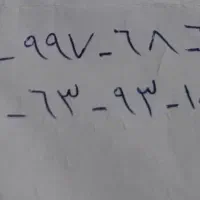 - ٩٩٧ - ٦٨
- ٦٣ - ٩٣ - ١